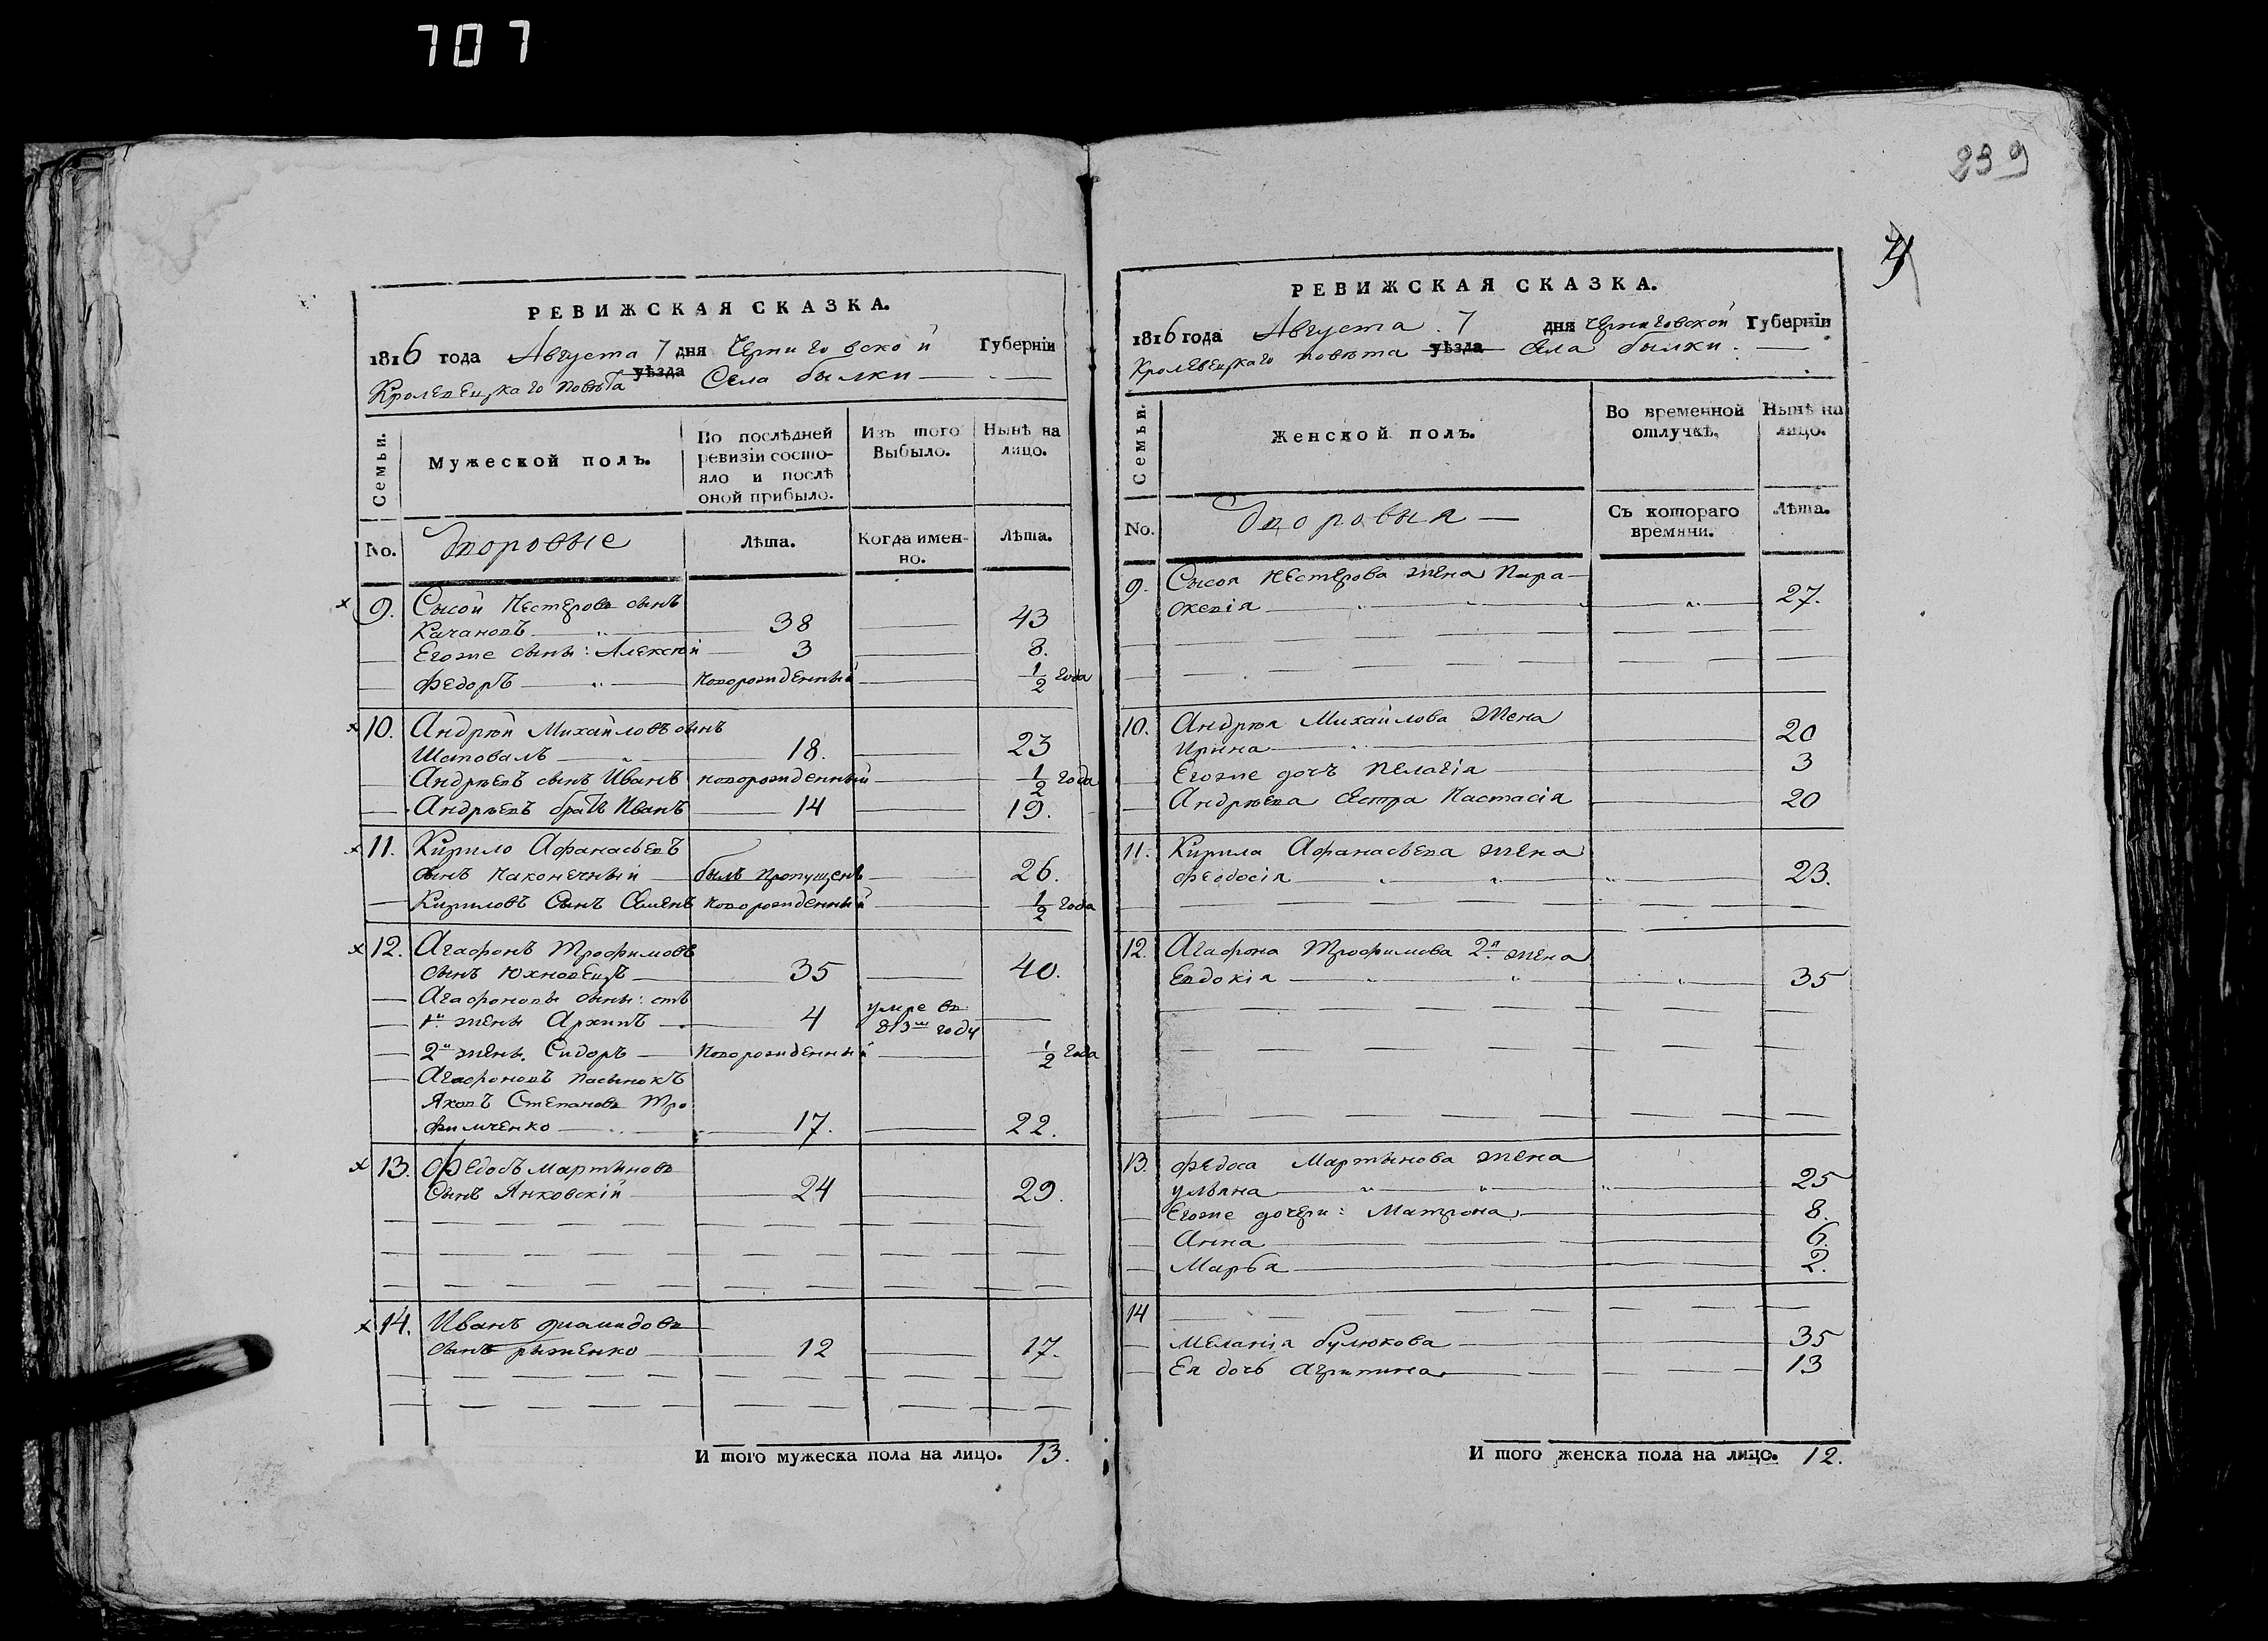 707
239
4
РЕВИЖСКАЯ СКАЗКА.
1816 года Августа 7 дня Черниговской Губерніи
Кролевецкаго повѣта уѣзда Села былки
Семьи.
Мужеской полъ.
По послѣдней ревизіи состояло и послѣ оной прибыло.
Изъ того Выбыло.
Нынѣ на лицо.
No.
Дворовые
Лѣта.
Когда именно.
Лѣта.
9. Сысой Нестеровъ сынъ
Качановъ 38 43
Егоже сыны: Алексѣй 3 8.
Федоръ новорожденный 1/2 года
10. Андрѣй Михайловъ сынъ
Шаповалъ 18. 23
Андрѣевъ сынъ Иванъ новорожденный 1/2 года
Андрѣевъ братъ Иванъ 14 19.
11. Кирило Афанасьевъ
сынъ Наконечный былъ пропущенъ 26.
Кириловъ Сынъ Семенъ новорожденный 1/2 года
12. Агафонъ Трофимовъ
сынъ Юхновецъ 35 40.
Агафоновы сыны: отъ
1й жены Архипъ 4 умре въ 813м году
2й жены. Сидоръ Новорожденный 1/2 года
Агафоновъ пасынокъ
Яковъ Степановъ Тро
фимченко 17. 22.
13. Федосъ Мартыновъ
Сынъ Янковскій 24 29.
14. Иванъ
сынъ рыженко 12 17.
И того мужеска пола на лицо. 13.
РЕВИЖСКАЯ СКАЗКА.
1816 года Августа 7 дня Черниговской Губерніи
Кролевецкаго повѣта уѣзда Села былки.
Семьи.
Женской полъ.
Во временной отлучкѣ.
Нынѣ на лицо.
No.
Дворовыя
Съ котораго времяни.
Лѣта.
9. Сысоя Нестерова жена Пара-
скевія 27.
10. Андрѣя Михайлова Жена
Ирина 20
Егоже дочъ Пелагія 3
Андрѣева Сестра Настасія 20
11. Кирила Афанасьева жена
Феодосія 23.
12. Агафона Трофимова 2я жена
Евдокія 35
13. Федоса Мартынова жена
ульяна 25
Егоже дочери: Матрона 8.
Анна 6.
Марфа 2.
14
Меланія булюкова 35
Ея дочь Агрипина 13
И того женска пола на лицо. 12.